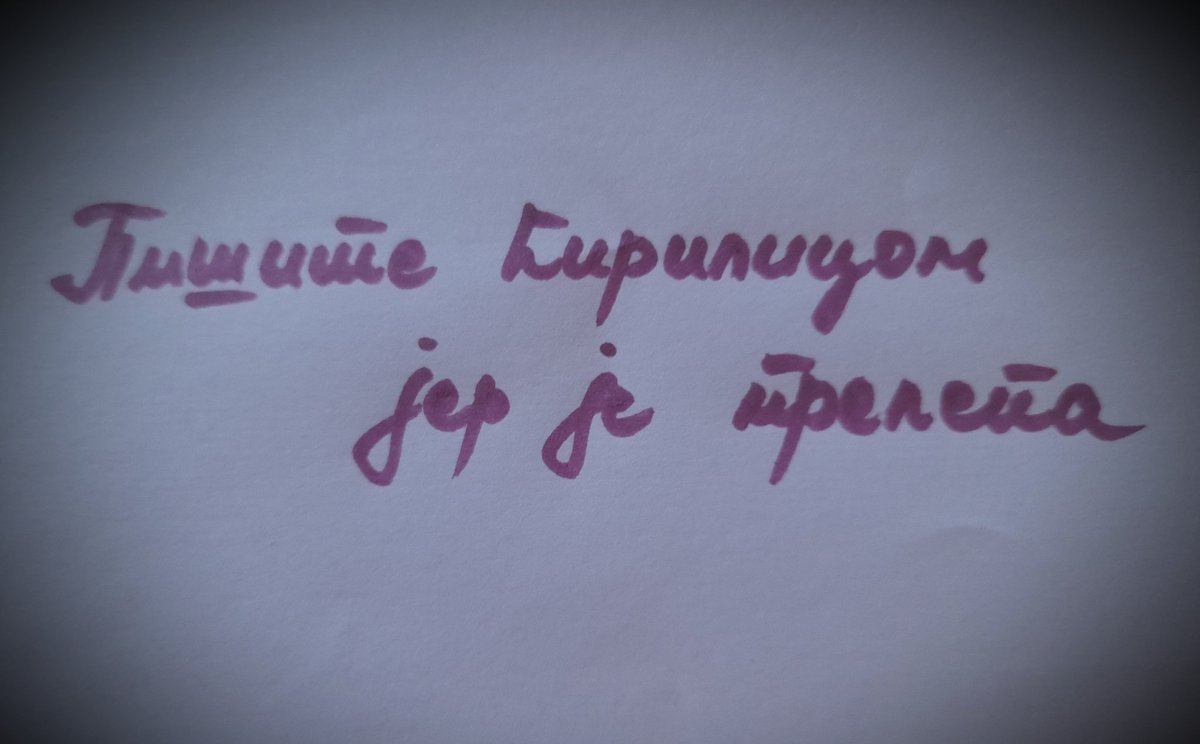 Пишите Ћирилицом
јер је прелепа